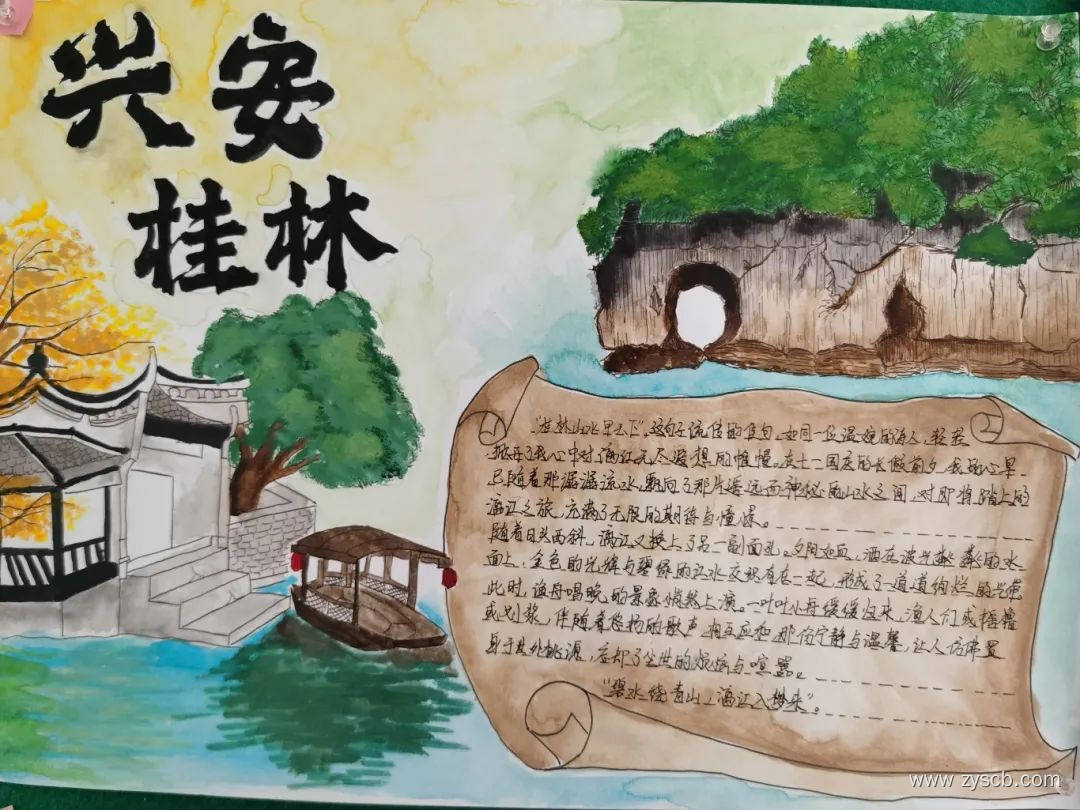 兴安
桂林
"桂林山水甲天下",这句流传的佳句,如同一位温婉的诗人,轻轻
掀开了我心中对漓江无尽遐想的帷幔。在十一国庆的长假前夕,我的心早
已随着那潺潺流水,飘向了那片遥远而神秘的山水之间,对即将踏上的
漓江之旅,充满了无限的期待与憧憬。
随着日头西斜,漓江又换上了另一副面孔。夕阳如血,洒在波光粼粼的水
面上,金色的光辉与碧绿的江水交织在一起,形成了一道道绚烂的光带
此时,渔舟唱晚的景象悄然上演。一叶叶小舟缓缓归来,渔人们或摇橹
或划桨,伴随着悠扬的歌声,相互应和,那份宁静与温馨,让人仿佛置
身于世外桃源,忘却了尘世的烦恼与喧嚣。
"碧水绕青山,漓江入梦来"。
www.zyscb.com